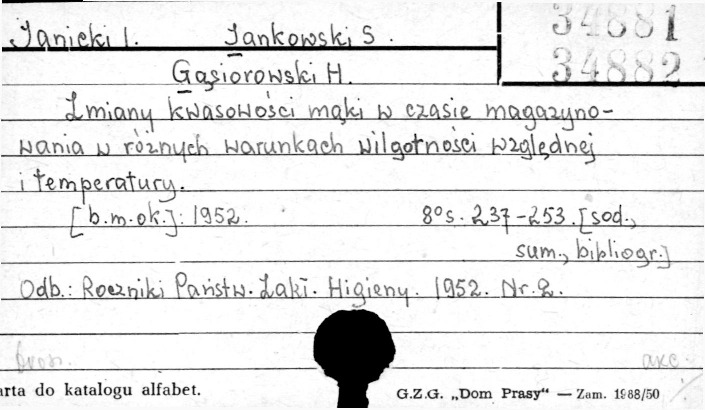 Janicki I. Jankowski S. 34881
Gąsiorowski H. 34882
Zmiany kwasowości mąki w czasie magazyno-
wania w różnych warunkach wilgotności względnej
i temperatury.
[b.m.ok.]: 1952. 8° s. 237-253. [sod.,
sum., bibliogr.]
Odb.: Roczniki Państw. Zakł. Higieny. 1952. Nr. 2.
brosz. akc.
arta do katalogu alfabet. G.Z.G. „Dom Prasy“ — Zam. 1988/50